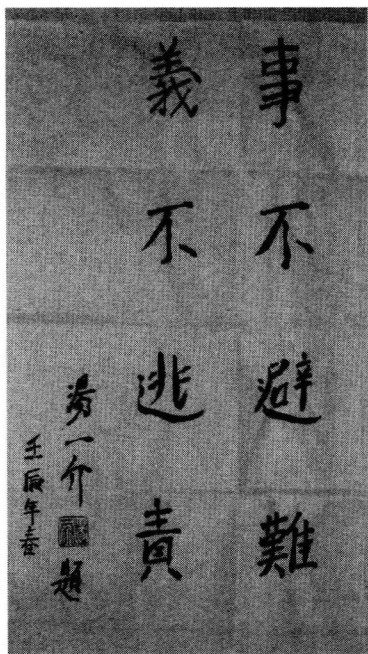 事不避難
義不逃責
湯一介 題
壬辰年春